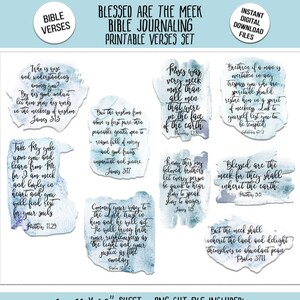 BLESSED ARE THE MEEK
BIBLE JOURNALING
PRINTABLE VERSES SET
BIBLE
VERSES
INSTANT
DIGITAL
DOWNLOAD
FILES
Who is wise
and understanding
among you?
By his good conduct
let him show his works
in the meekness of wisdom
James 3:13
But the wisdom from
above is first pure then
peaceable gentle open to
reason full of mercy
and good fruits
impartial and sincere
James 3:17
Moses was
very meek
more than
all men
that were
on the face
of the earth
Brethren if a man is
overtaken in any
trespass you who are
spiritual should
restore him in a spirit
of meekness
yourself lest you too
be tempted
Galatians 6:1-2
Take My yoke
upon you and
learn from Me
for I am meek
and lowly in
heart and you
will find rest
for your souls
Matthew 11:29
Commit your way to
the Lord trust in
him and he will act
He will bring forth
your righteousness as
the light and your
justice as the
noonday
Know this my
beloved brothers
let every person
be quick to hear
slow to speak
slow to anger
James 1:19
Blessed are the
meek for they shall
inherit the earth
Matthew 5:5
But the meek shall
inherit the land and delight
themselves in abundant peace
Psalm 37:11